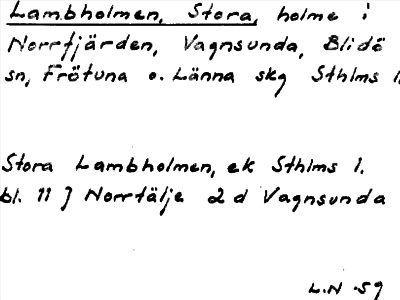 Lambholmen, Stora, holme i
Norrfjärden, Vagnsunda, Blidö
sn, Frötuna o. Länna skg Sthlms l.
Stora Lambholmen, ek Sthlms l.
bl. 11 J Norrtälje 2 d Vagnsunda
L.N -59